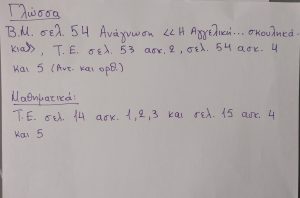 Γλώσσα
Β.Μ. σελ. 54 Ανάγνωση << Η Αγγελική... σκουλικά-
κια>>, Τ.Ε. σελ. 53 ασκ. 2, σελ. 54 ασκ. 4
και 5 (Αντ. και ορθ.)
Μαθηματικά:
Τ.Ε. σελ. 14 ασκ. 1,2,3 και σελ. 15 ασκ. 4
και 5